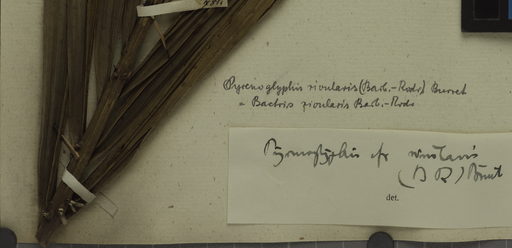 Pyrenoglyphis rivularis (Barb.-Rodr) Burret
= Bactris rivularis Barb.-Rodr
Pyrenoglyphis cfr rivularis
(B R) Burret
det.